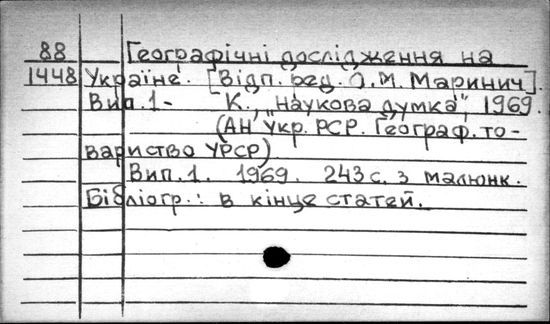 88 Географічні дослідження на
1448 Україне. [Відп. ред. О.М. Маринич].
Вип.1- К., "Наукова думка", 1969.
(АН Укр. РСР. Географ. то-
вариство УРСР)
Вип.1. 1969. 243 с. з малюнк.
Бібліогр.: в кінце статей.